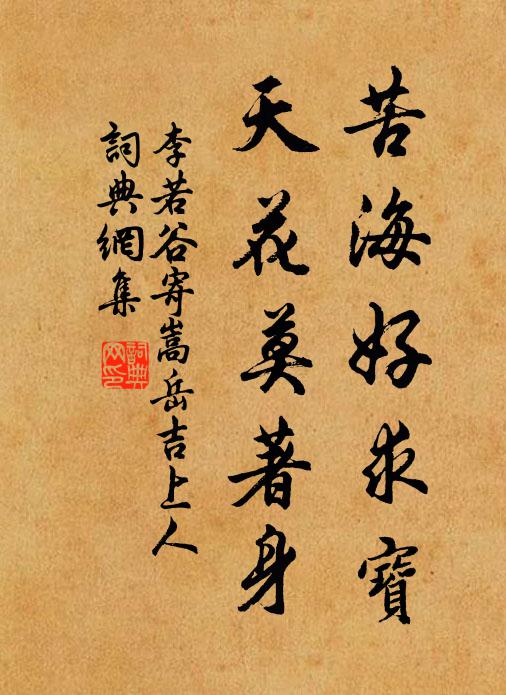 苦海好求寶
天花莫著身
李若谷寄嵩岳吉上人
詞典網集
詞典
网印